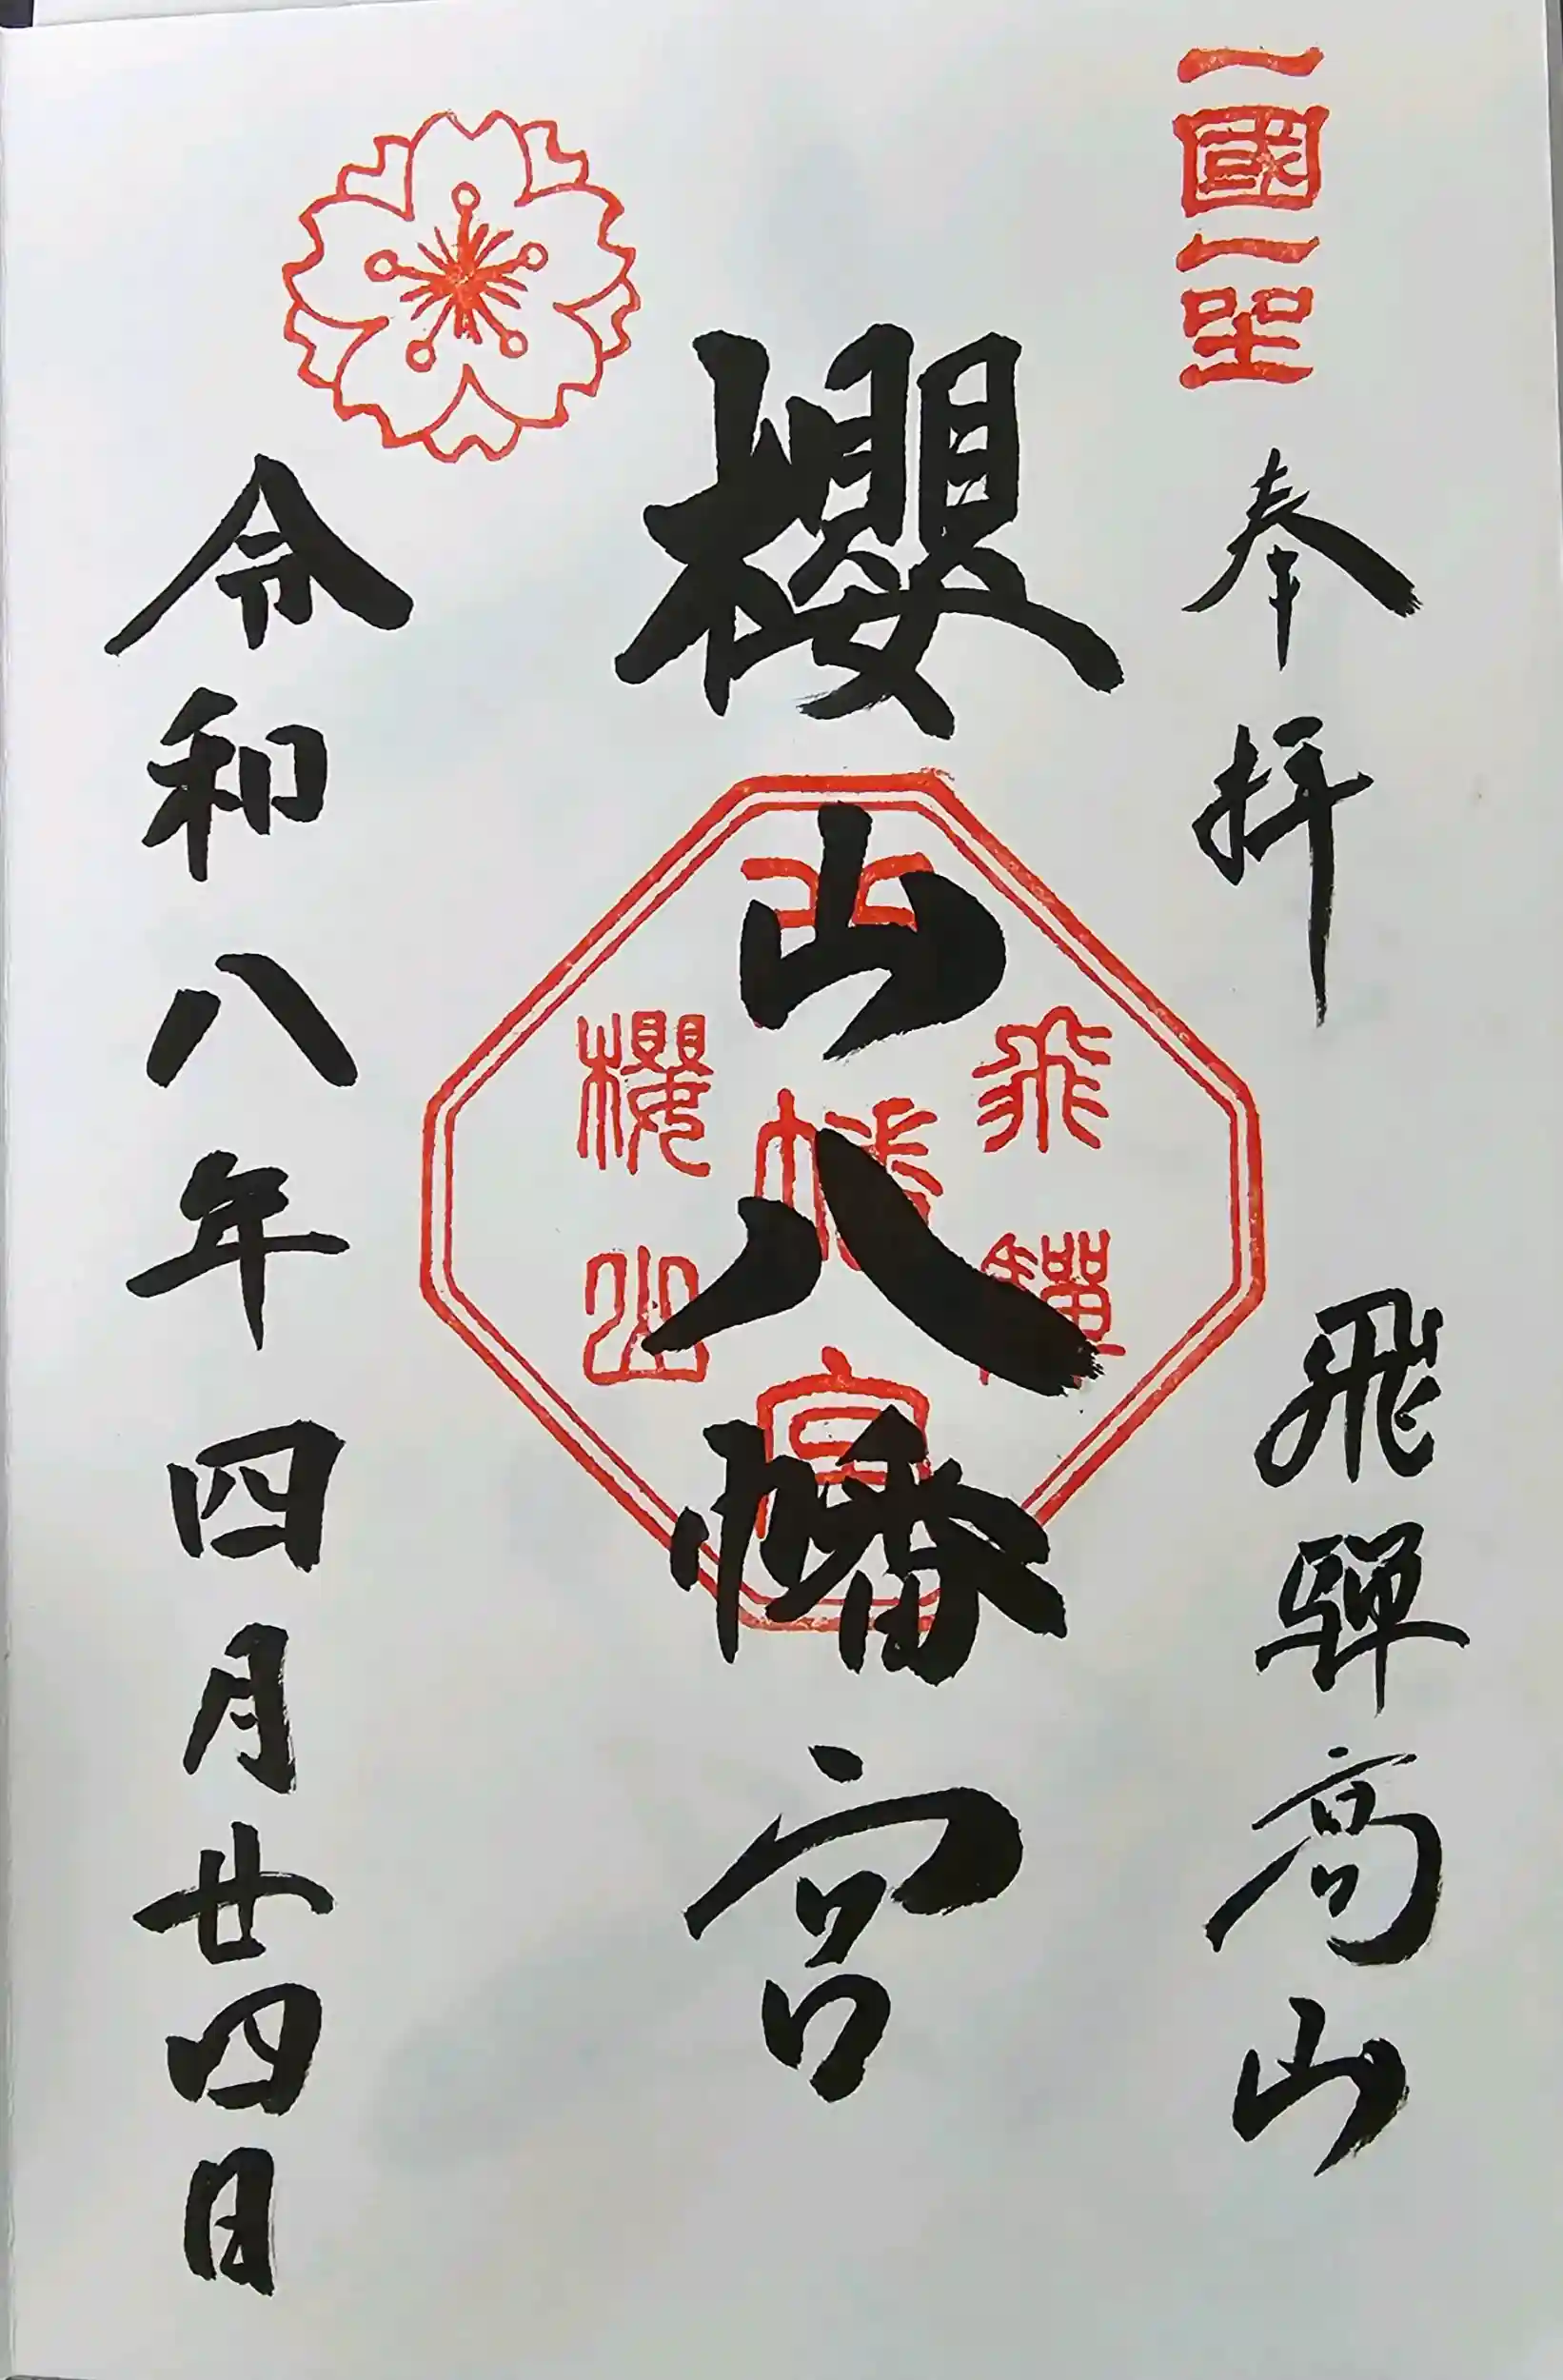 一國一坐
奉拝
飛驒高山
櫻山八幡宮
飛驒
幡宮
櫻山
令和八年四月廿四日